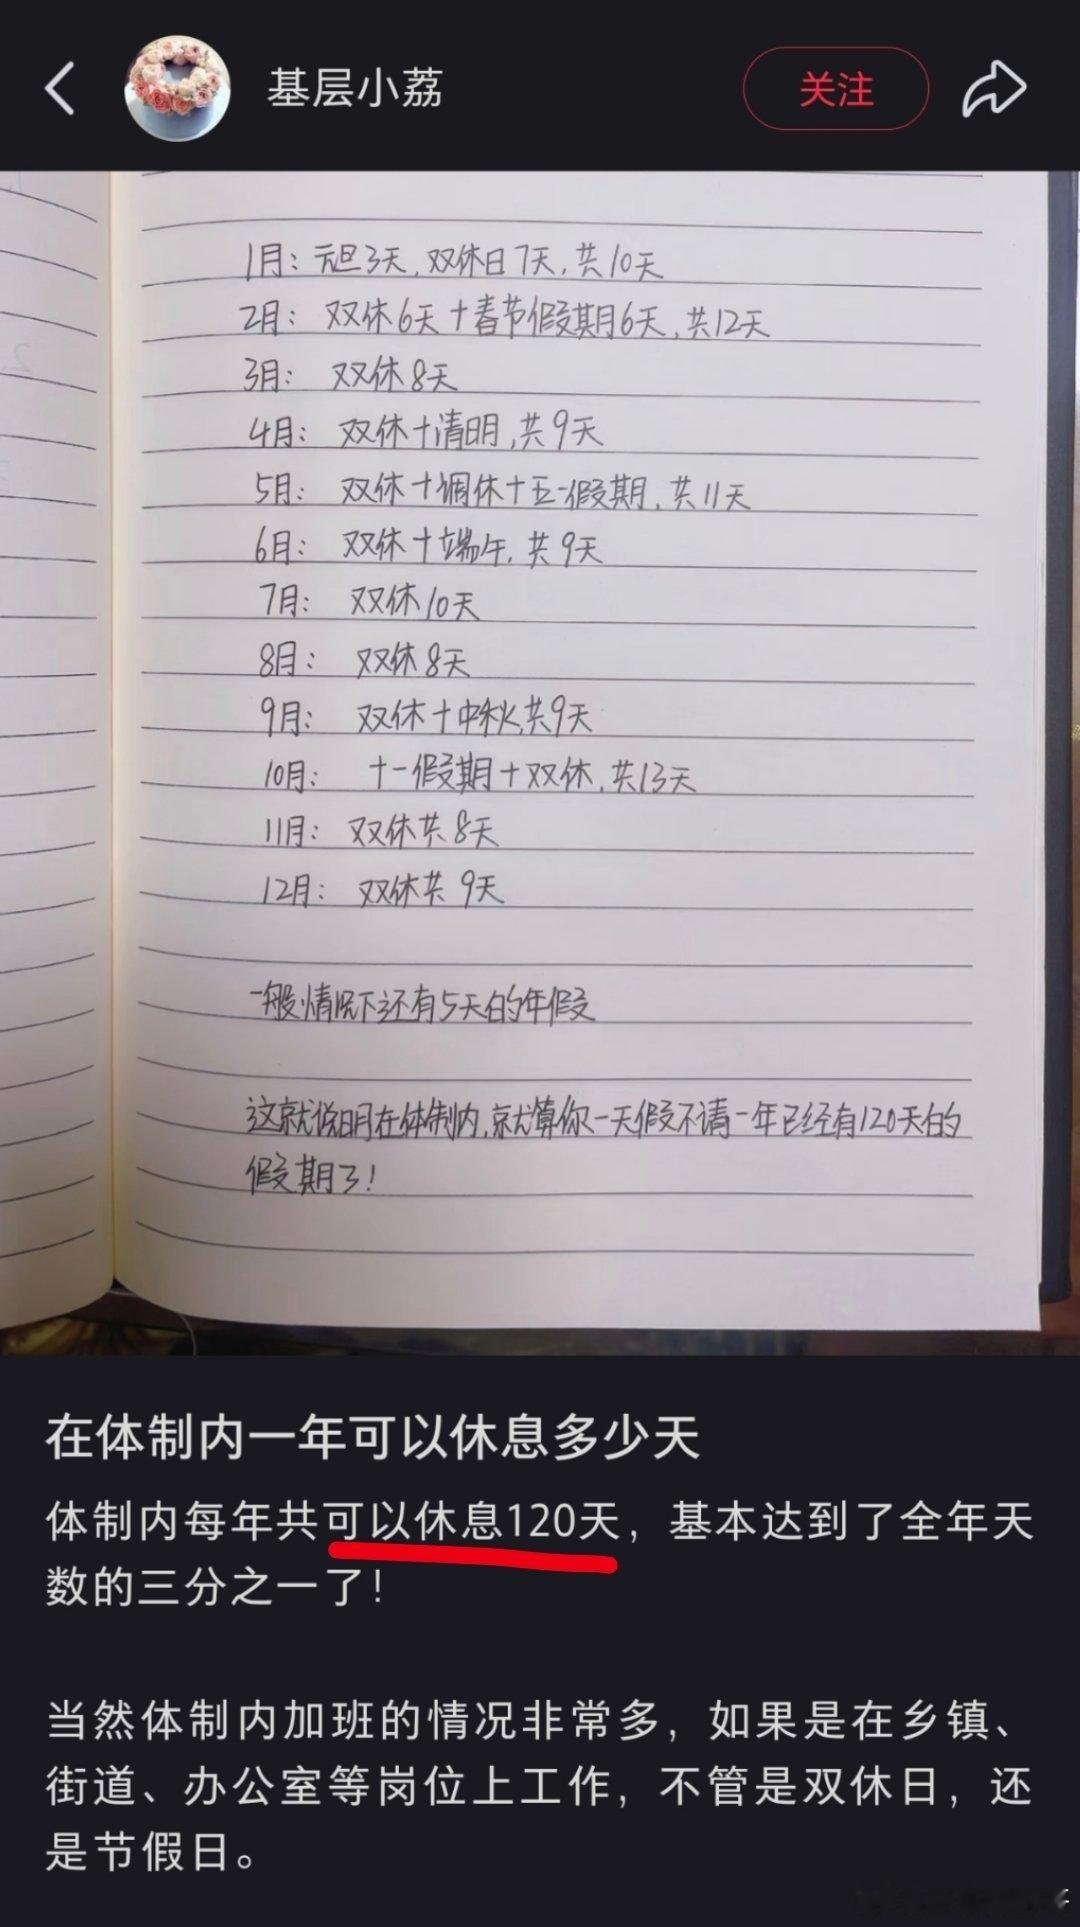 基层小荔
关注
1月：元旦3天，双休日7天，共10天
2月：双休6天+春节假期6天，共12天
3月：双休8天
4月：双休+清明，共9天
5月：双休+调休+五一假期，共11天
6月：双休+端午，共9天
7月：双休10天
8月：双休8天
9月：双休+中秋，共9天
10月：十一假期+双休，共13天
11月：双休共8天
12月：双休共9天
一般情况下还有5天的年假
这就说明在体制内，就算你一天假不请一年已经有120天的
假期了！
在体制内一年可以休息多少天
体制内每年共可以休息120天，基本达到了全年天
数的三分之一了！
当然体制内加班的情况非常多，如果是在乡镇、
街道、办公室等岗位上工作，不管是双休日，还
是节假日。